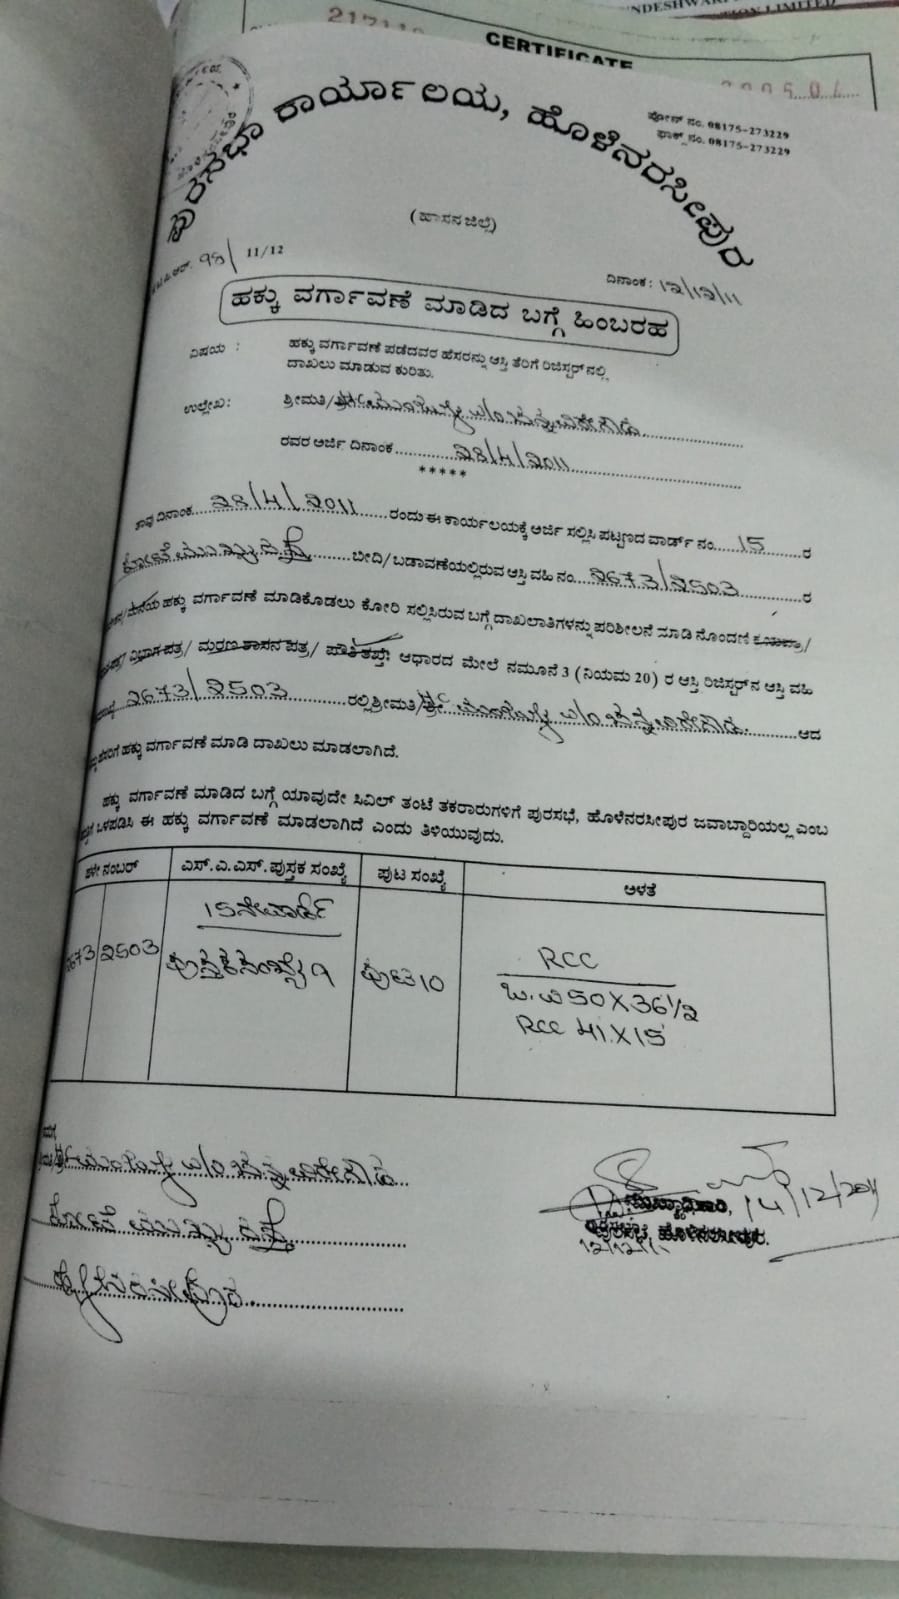 217110
CERTIFICATE
ಪುರಸಭಾ ಕಾರ್ಯಾಲಯ, ಹೊಳೆನರಸೀಪುರ
ಫೋನ್ ನಂ. 08175-273229
ಫಾಕ್ಸ್ ನಂ. 08175-273229
(ಹಾಸನ ಜಿಲ್ಲೆ)
11/12
ದಿನಾಂಕ: ೧೨/೧೨/೧೧
ಹಕ್ಕು ವರ್ಗಾವಣೆ ಮಾಡಿದ ಬಗ್ಗೆ ಹಿಂಬರಹ
ವಿಷಯ : ಹಕ್ಕು ವರ್ಗಾವಣೆ ಪಡೆದವರ ಹೆಸರನ್ನು ಆಸ್ತಿ ತೆರಿಗೆ ರಿಜಿಸ್ಟರ್‌ನಲ್ಲಿ
ದಾಖಲು ಮಾಡುವ ಕುರಿತು.
ಉಲ್ಲೇಖ: ಶ್ರೀಮತಿ/
ರವರ ಅರ್ಜಿ ದಿನಾಂಕ ೨8/4/೨011
*****
ತಾವು ದಿನಾಂಕ ೨8/4/೨011 ರಂದು ಈ ಕಾರ್ಯಲಯಕ್ಕೆ ಅರ್ಜಿ ಸಲ್ಲಿಸಿ ಪಟ್ಟಣದ ವಾರ್ಡ್ ನಂ. 15 ರ
ಕೋಟೆ ಮುಖ್ಯ ರಸ್ತೆ ಬೀದಿ/ಬಡಾವಣೆಯಲ್ಲಿರುವ ಆಸ್ತಿ ವಹಿ ನಂ. ೨673/೨503 ರ
ಮನೆಯ ಹಕ್ಕು ವರ್ಗಾವಣೆ ಮಾಡಿಕೊಡಲು ಕೋರಿ ಸಲ್ಲಿಸಿರುವ ಬಗ್ಗೆ ದಾಖಲಾತಿಗಳನ್ನು ಪರಿಶೀಲನೆ ಮಾಡಿ ನೊಂದಣಿ ಕ್ರಯಪತ್ರ/
ವಿಭಾಗ ಪತ್ರ/ ಮರಣ ಶಾಸನ ಪತ್ರ/ ಆಧಾರದ ಮೇಲೆ ನಮೂನೆ 3 (ನಿಯಮ 20) ರ ಆಸ್ತಿ ರಿಜಿಸ್ಟರ್‌ನ ಆಸ್ತಿ ವಹಿ
೨673/೨503 ರಲ್ಲಿ ಶ್ರೀಮತಿ/ಶ್ರೀ ಆದ
ಹಕ್ಕು ವರ್ಗಾವಣೆ ಮಾಡಿ ದಾಖಲು ಮಾಡಲಾಗಿದೆ.
ಹಕ್ಕು ವರ್ಗಾವಣೆ ಮಾಡಿದ ಬಗ್ಗೆ ಯಾವುದೇ ಸಿವಿಲ್ ತಂಟೆ ತಕರಾರುಗಳಿಗೆ ಪುರಸಭೆ, ಹೊಳೆನರಸೀಪುರ ಜವಾಬ್ದಾರಿಯಲ್ಲ ಎಂಬ
ಒಳಪಡಿಸಿ ಈ ಹಕ್ಕು ವರ್ಗಾವಣೆ ಮಾಡಲಾಗಿದೆ ಎಂದು ತಿಳಿಯುವುದು.
ನಂಬರ್ ಎಸ್.ಎ.ಎಸ್. ಪುಸ್ತಕ ಸಂಖ್ಯೆ ಪುಟ ಸಂಖ್ಯೆ ಅಳತೆ
15ನೇ ವಾರ್ಡ್
೨503 ಪುಸ್ತಕ ಸಂಖ್ಯೆ 9 ಪುಟ 10 RCC
50X36 1/೨
RCC 41X15
ಕೋಟೆ ಮುಖ್ಯ ರಸ್ತೆ
ಮುಖ್ಯಾಧಿಕಾರಿ, 14/12/2011
ಪುರಸಭೆ, ಹೊಳೆನರಸೀಪುರ.
ಹೊಳೆನರಸೀಪುರ.